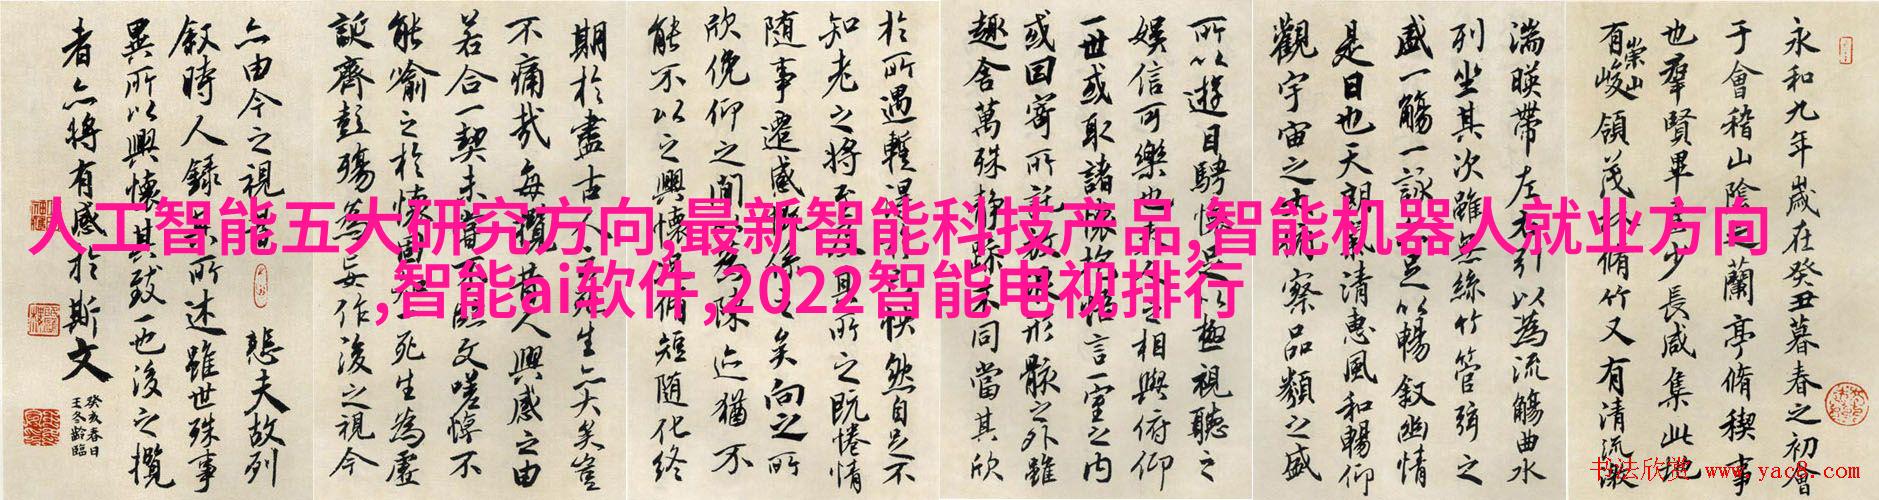 永和九年歲在癸丑暮春之初會
于會稽山陰之蘭亭脩稧事
也羣賢畢至少長咸集此地
有崇山峻領茂林脩竹又有清流激
湍暎帶左右引以為流觴曲水
列坐其次雖無絲竹管弦之
盛一觴一詠亦足以暢叙幽情
是日也天朗氣清惠風和暢仰
觀宇宙之大俯察品類之盛
所以遊目騁懷足以極視聽之
娛信可樂也夫人之相與俯仰
一世或取諸懷抱悟言一室之內
或因寄所託放浪形骸之外雖
趣舍萬殊靜躁不同當其欣
於所遇暫得於己快然自足不
知老之將至及其所之既惓情
隨事遷感慨係之矣向之所
欣俛仰之間以為陳迹猶不
能不以之興懷況脩短隨化終
期於盡古人云死生亦大矣豈
不痛哉每攬昔人興感之由
若合一契未嘗不臨文嗟悼不
能喻之於懷固知一死生為虛
誕齊彭殤為妄作後之視今
亦由今之視昔
悲夫故列
叙時人錄其所述雖世殊事
異所以興懷其致一也後之攬
者亦將有感於斯文
癸亥春日
王冬齡臨
人工智能五大研究方向,最新智能科技产品,智能机器人就业方向
,智能ai软件,2022智能电视排行
书法欣赏 www.yac8.com